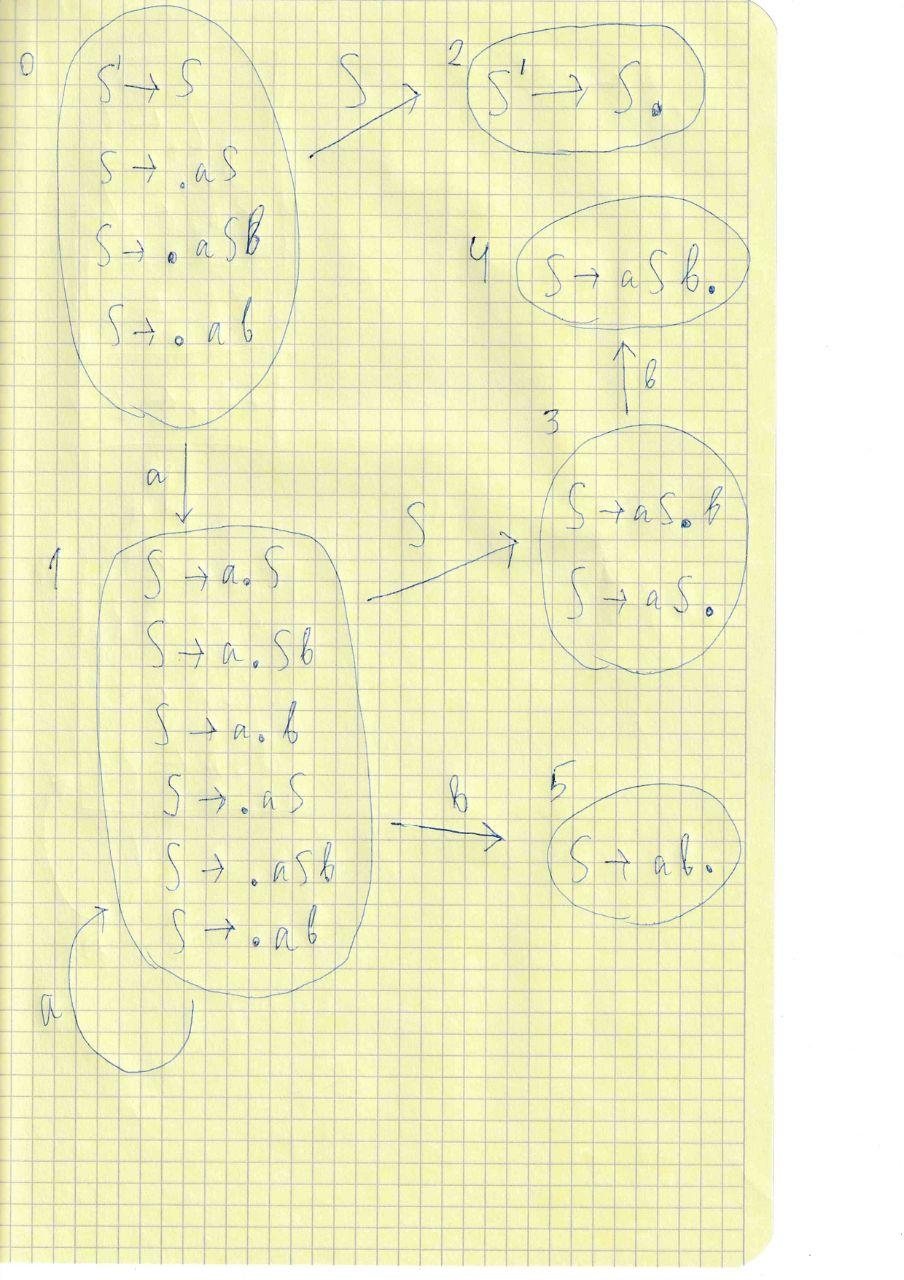 0
S' → S
S → .aS
S → .aSb
S → .ab
S
2
S' → S.
4
S → aSb.
b
3
S → aS.b
S → aS.
a
1
S → a.S
S → a.Sb
S → a.b
S → .aS
S → .aSb
S → .ab
S
b
5
S → ab.
a